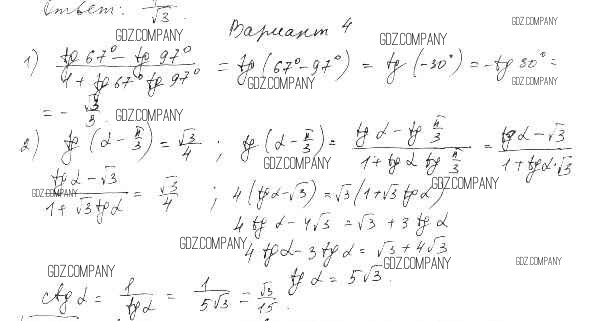 Ответ: 1/√3
GDZ.COMPANY
Вариант 4
1) (tg 67° - tg 97°)/(1 + tg 67° tg 97°) = tg (67° - 97°) = tg (-30°) = -tg 30° =
= - √3/3
2) tg (α - π/3) = √3/4 ; tg (α - π/3) = (tg α - tg π/3)/(1 + tg α tg π/3) = (tg α - √3)/(1 + tg α·√3)
(tg α - √3)/(1 + √3 tg α) = √3/4 ; 4(tg α - √3) = √3(1 + √3 tg α)
4 tg α - 4√3 = √3 + 3 tg α
4 tg α - 3 tg α = √3 + 4√3
tg α = 5√3.
ctg α = 1/tg α = 1/(5√3) = √3/15.
GDZ.COMPANY
GDZ.COMPANY
GDZ.COMPANY
GDZ.COMPANY
GDZ.COMPANY
GDZ.COMPANY
GDZ.COMPANY
GDZ.COMPANY
GDZ.COMPANY
GDZ.COMPANY
GDZ.COMPANY
GDZ.COMPANY
GDZ.COMPANY